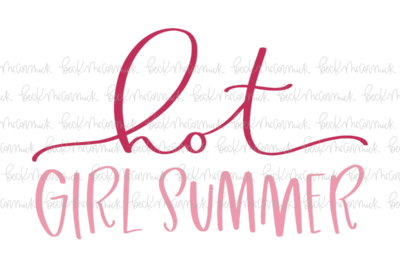 hot
GIRL SUMMER